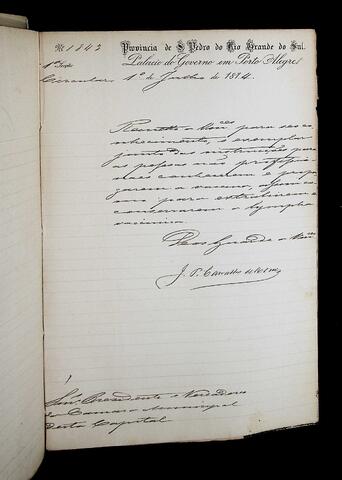 Nº 1843
Provincia de S. Pedro do Rio Grande do Sul.
Palacio do Governo em Porto Alegre,
1ª Secção
Circular 1º de Julho de 1874.
Remetto a Vm.ces para seu co-
nhecimento, o exemplar
junto das instrucções para
as pessoas não profissio-
naes conhecerem e propa-
garem a vaccina, assim co-
mo para extrahirem e
conservarem a lympha
vaccinica.
Deos Guarde a Vm.ces
J. P. Carvalho de
Snrs. Presidente e Vereadores
da Camara Municipal
desta Capital